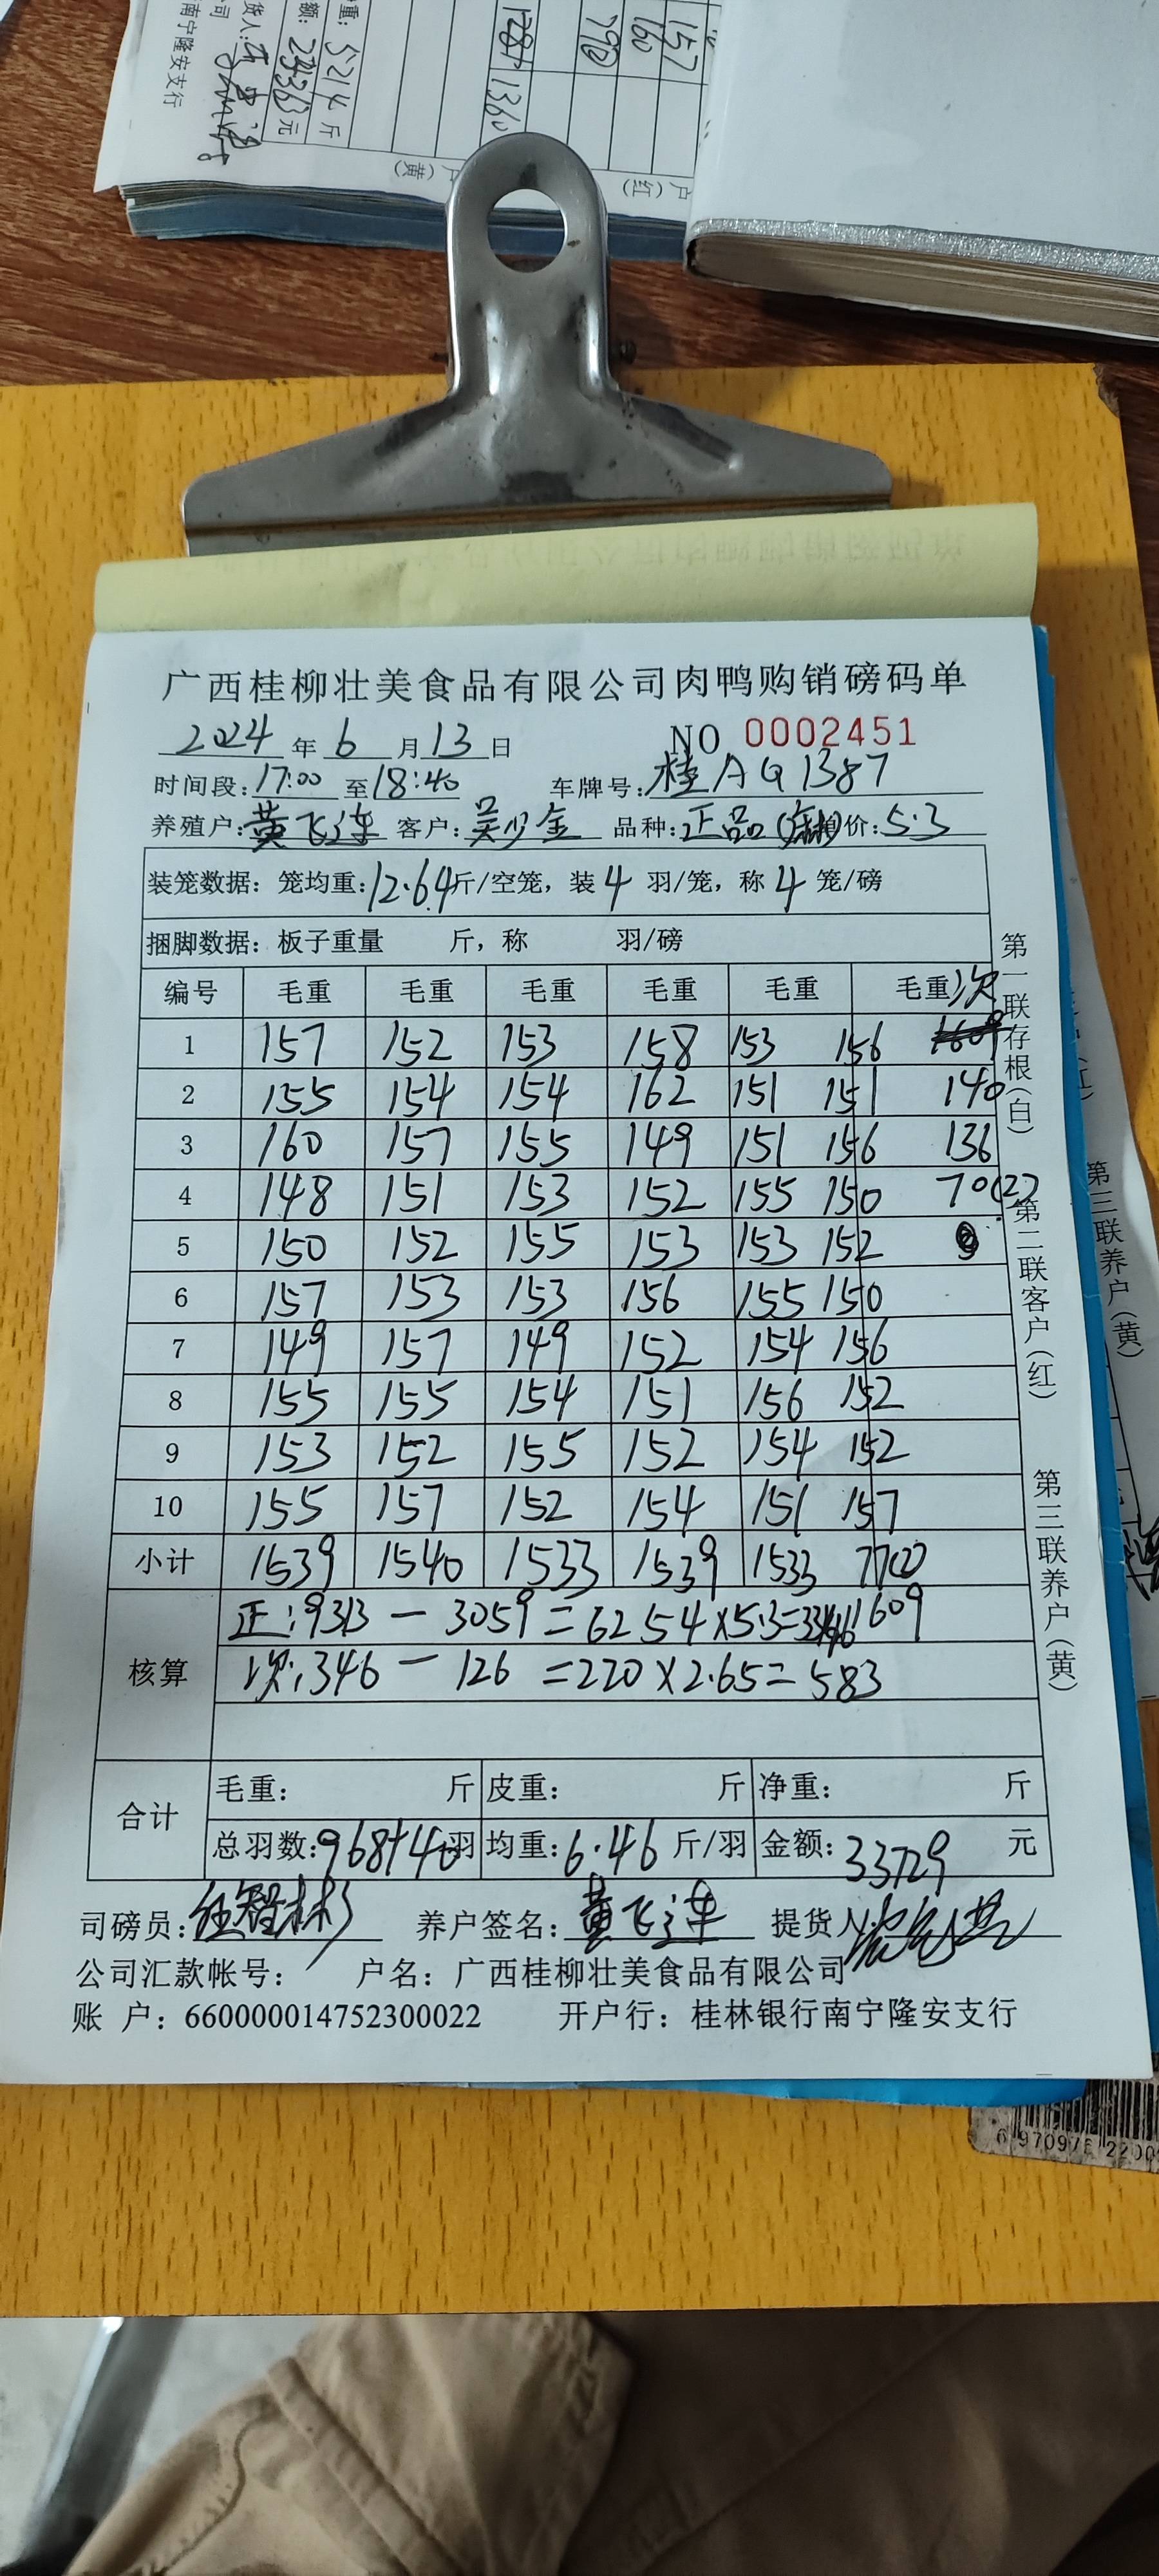 157
160
790
1360
重: 5214 斤
额: 27363 元
货人:
司
南宁隆安支行
户(黄)
户(红)
广西桂柳壮美食品有限公司肉鸭购销磅码单
2024 年 6 月 13 日 NO 0002451
时间段: 17:00 至 18:40 车牌号: 桂AG1387
养殖户: 黄飞连 客户: 吴少金 品种: 正品 价: 5.3
装笼数据: 笼均重: 12.64 斤/空笼, 装 4 羽/笼, 称 4 笼/磅
捆脚数据: 板子重量 斤, 称 羽/磅
编号 毛重 毛重 毛重 毛重 毛重 毛重 次
1 157 152 153 158 153 156
2 155 154 154 162 151 151 140
3 160 157 155 149 151 156 136
4 148 151 153 152 155 150 70(2)
5 150 152 155 153 153 152
6 157 153 153 156 155 150
7 149 157 149 152 154 156
8 155 155 154 151 156 152
9 153 152 155 152 154 152
10 155 157 152 154 151 157
小计 1539 1540 1533 1539 1533 77(2)
核算
正: 9313 - 3059 = 6254 × 5.3 = 33146 1609
次: 346 - 126 = 220 × 2.65 = 583
合计
毛重: 斤 皮重: 斤 净重: 斤
总羽数: 968+40 羽 均重: 6.46 斤/羽 金额: 33729 元
司磅员: 任智彬 养户签名: 黄飞连 提货人:
公司汇款帐号: 户名: 广西桂柳壮美食品有限公司
账 户: 660000014752300022 开户行: 桂林银行南宁隆安支行
第一联存根(白)
第二联客户(红)
第三联养户(黄)
第三联养户(黄)
6 970976 2200